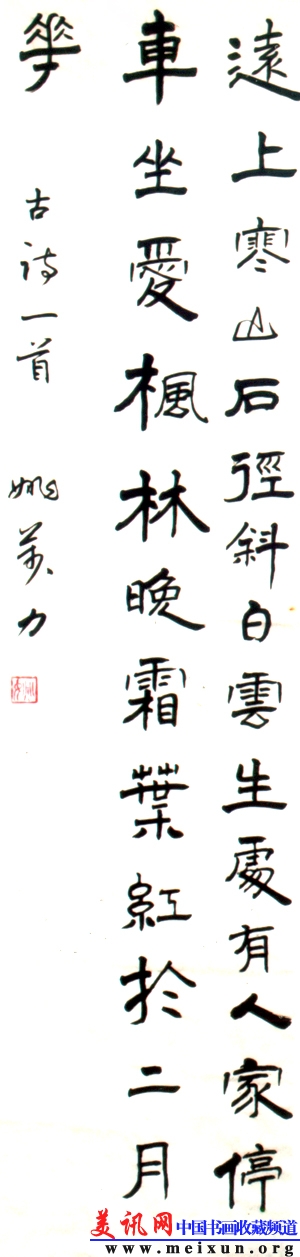 遠上寒山石徑斜白雲生處有人家停
車坐愛楓林晚霜葉紅於二月
華
古诗一首 姚万力
美讯网 中国书画收藏频道
www.meixun.org